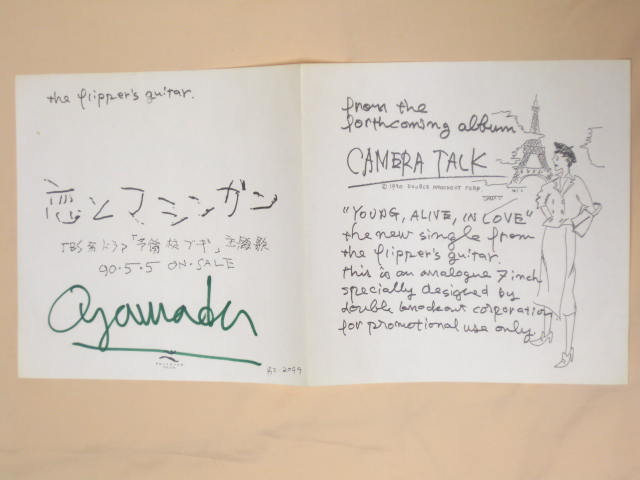 the flipper's guitar.
恋とマシンガン
TBS系ドラマ「予備校ブギ」主題歌
90・5・5 ON・SALE
from the
forthcoming album
CAMERA TALK
© 1990 DOUBLE KNOCKOUT CORP
"YOUNG, ALIVE, IN LOVE"
the new single from
the flipper's guitar.
this is an analogue 7 inch
specially designed by
double knockout corporation
for promotional use only.